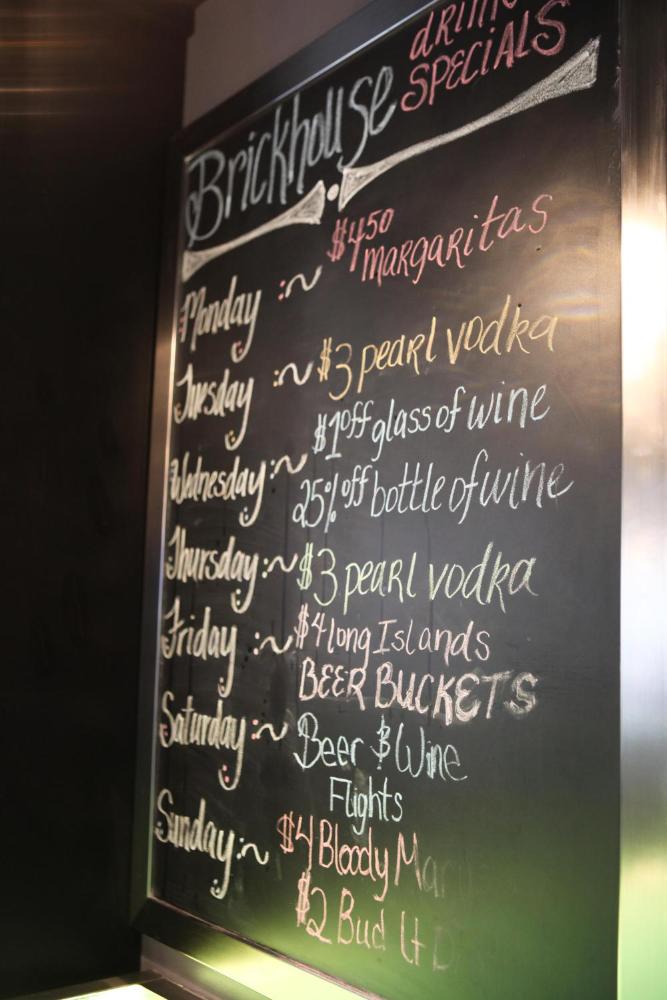 Brickhouse drink SPECiALS
Monday :~ $4.50 margaritas
Tuesday :~ $3 pearl vodka
Wednesday :~ $1 off glass of wine
25% off bottle of wine
Thursday :~ $3 pearl vodka
Friday :~ $4 long Islands
BEER BUCKETS
Saturday :~ Beer & Wine
Flights
Sunday :~ $4 Bloody Mary
$2 Bud Lt